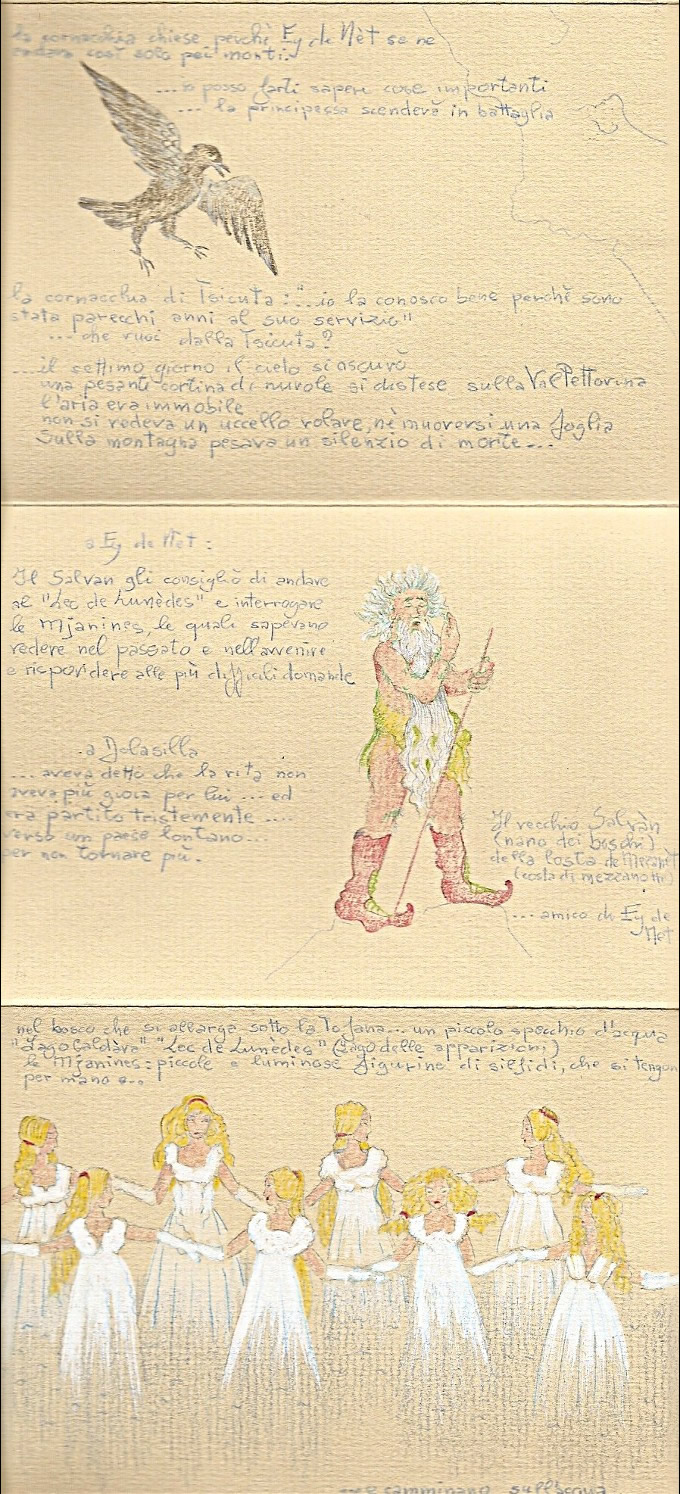 la cornacchia chiese perchè Ey de Nèt se ne
andava così solo pei monti.
...io posso farti sapere cose importanti
... la principessa scenderà in battaglia
la cornacchia di Tsicuta: "...io la conosco bene perchè sono
stata parecchi anni al suo servizio"
... che vuoi dalla Tsicuta?
...il settimo giorno il cielo si oscurò
una pesante cortina di nuvole si distese sulla Val Pettorina
l'aria era immobile
non si vedeva un uccello volare, nè muoversi una foglia
Sulla montagna pesava un silenzio di morte...
a Ey de Net:
Il Salvan gli consigliò di andare
al "Lec de Lunèdes" e interrogare
le Mjanines, le quali sapevano
vedere nel passato e nell'avvenire
e rispondere alle più difficili domande
a Dolasilla
... aveva detto che la vita non
aveva più gioia per lui ... ed
era partito tristemente ....
verso un paese lontano...
per non tornare più.
Il vecchio Salvàn
(nano dei boschi)
della Costa de Mesanèt
(costa di mezzanotte)
... amico di Ey de
Net
nel bosco che si allarga sotto la Tofana... un piccolo specchio d'acqua
"Lago Baldàva" "Lec de Lunèdes" (Lago delle apparizioni)
le Mjanines: piccole e luminose figurine di silfidi, che si tengon
per mano e..
...e camminano sull'acqua